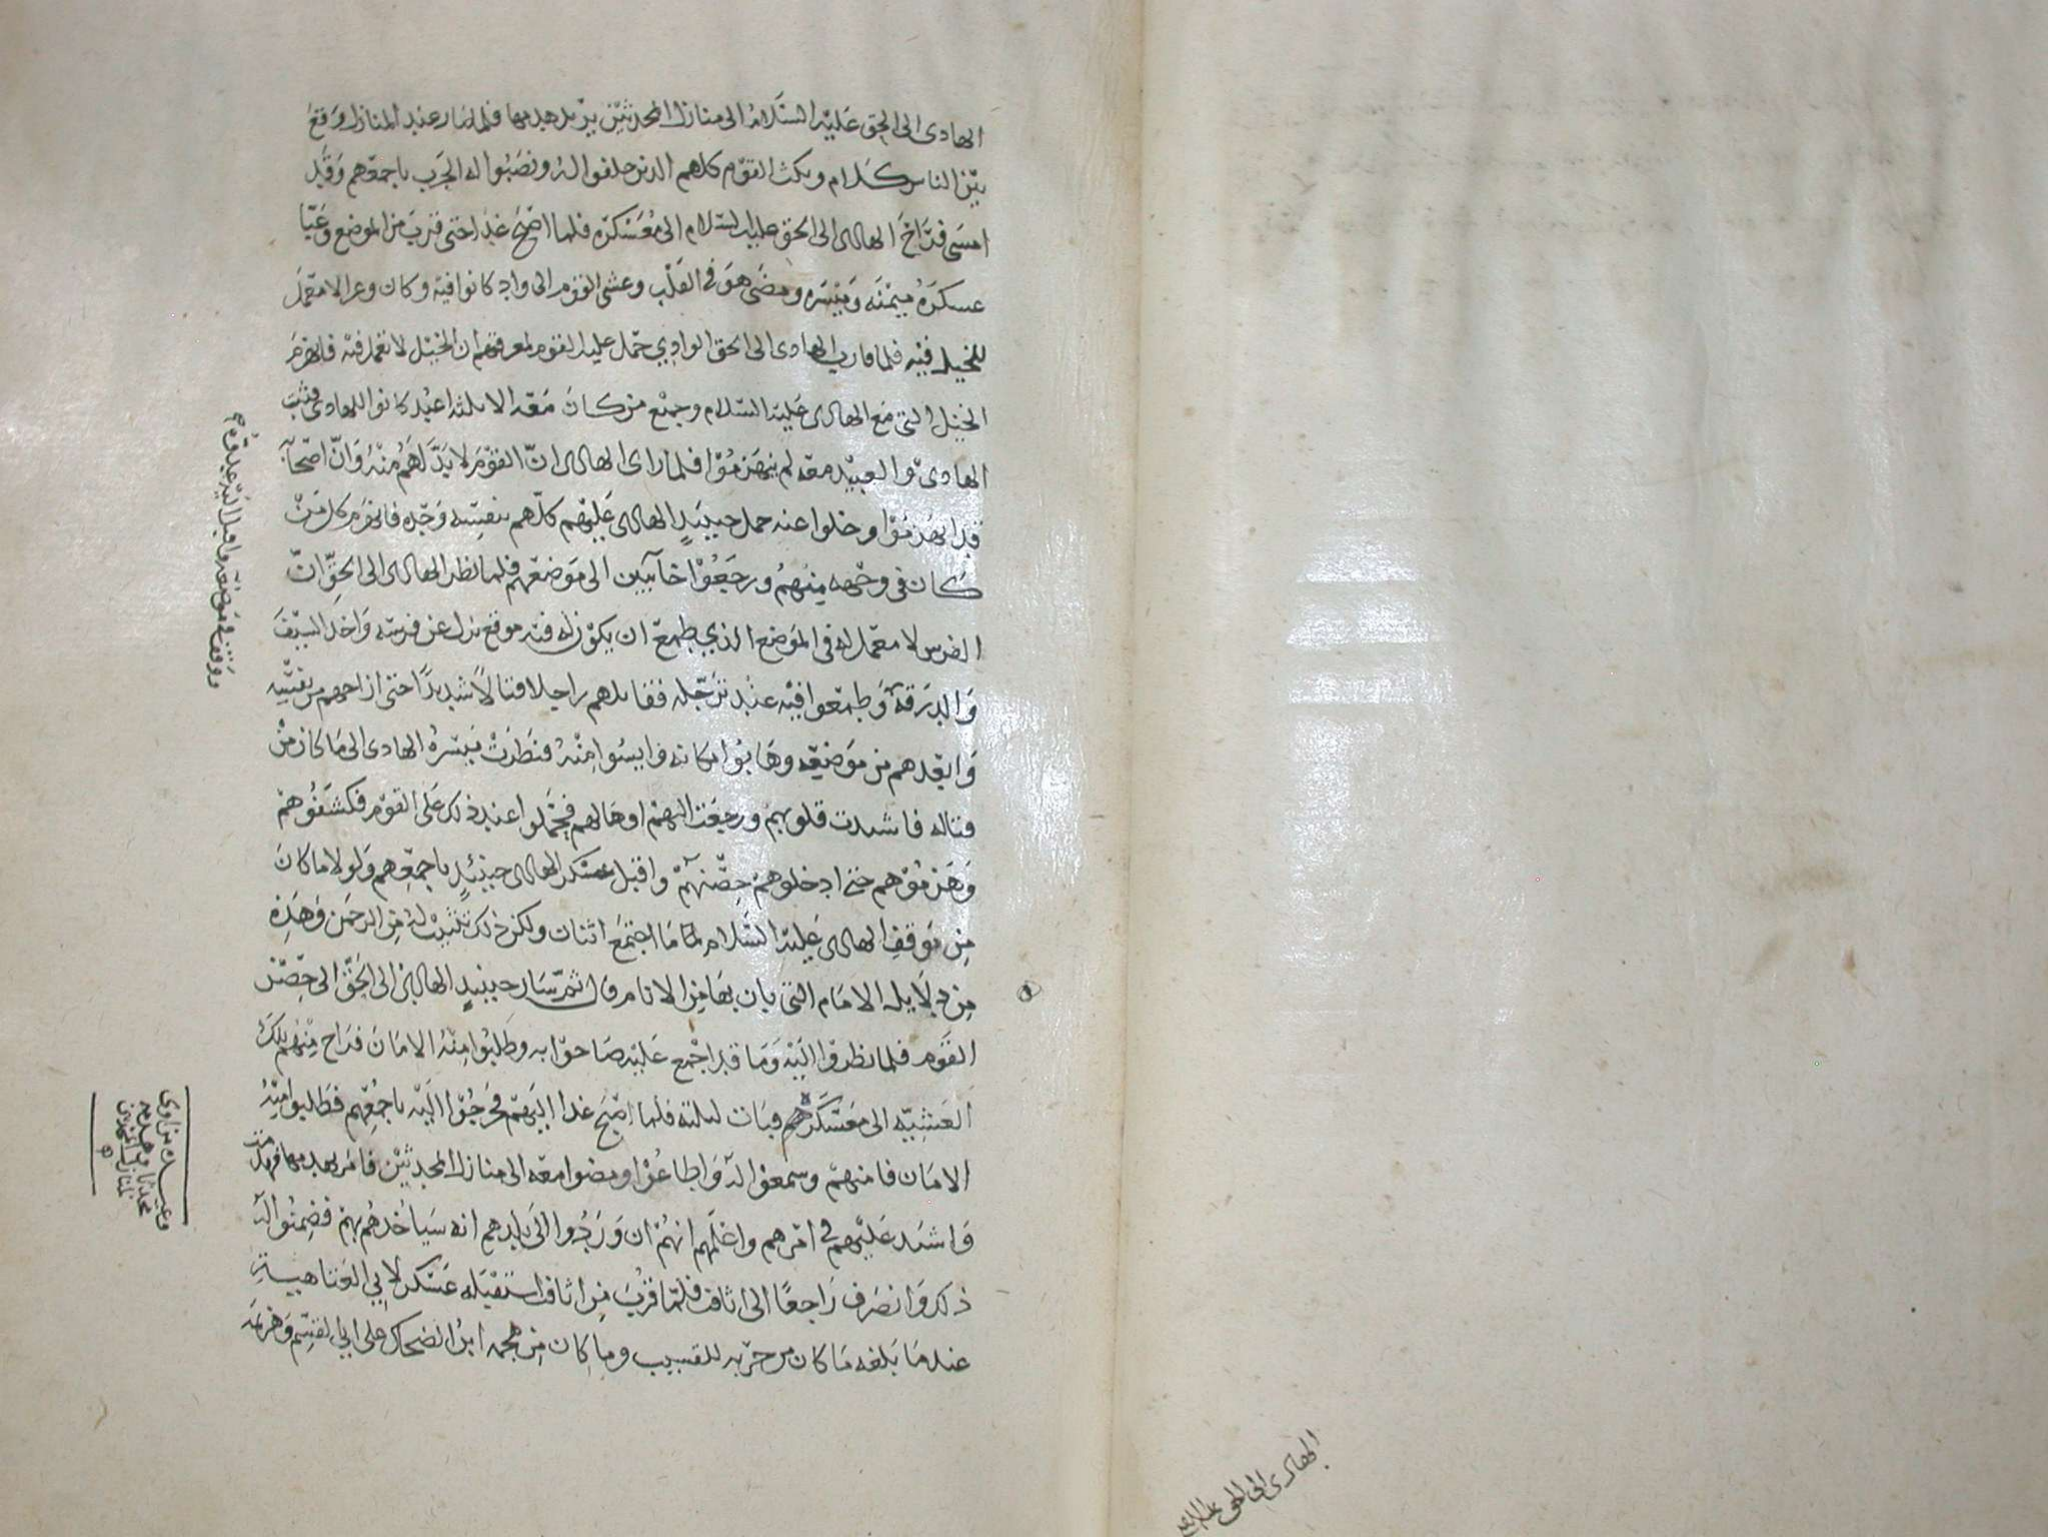 الهادى الى الحق عليه السلام الى منازل المحدثين يريد هدمها فلما صار عند المنازل وقع
بين الناس كلام ونكث القوم كلهم الذين حلفوا له ونصبوا له الحرب باجمعهم وقد
امسى فراح الهادى الى الحق عليه السلام الى معسكره فلما اصبح غدا حتى قرب من الموضع وعبا
عسكره ميمنه وميسره ومضى هو فى القلب وعشى القوم الى واد كانوا فيه وكان وعرا لا معمل
للخيل فيه فلما قارب الهادى الى الحق الوادي حمل عليه القوم لمعرفتهم ان الخيل لا تعمل فيه فانهزم
الخيل التى مع الهادى عليه السلام وجميع من كان معه الا ثلثه اعبد كانوا للهادى فثبت
الهادى والعبيد معه لم ينهزموا فلما راى الهادى ان القوم لا بد لهم منه وان اصحابه
قد انهزموا وخلوا عنه حمل حينئذ الهادى عليهم كلهم بنفسه وحده فانهزم كل من
كان فى وجهه منهم ورجعوا خآيبين الى موضعهم فلما نظر الهادى الى الحق ان
الفرس لا معمل له فى الموضع الذي طمع ان يكون له فيه موقع نزل عن فرسه واخذ السيف
والدرقة وطمعوا فيه عند ترجله فقاتلهم راجلا قتالا شديدا حتى ازاحهم من نفسه
وابعدهم من موضعه وهابوا مكانه وايسوا منه فنظرت ميسره الهادى الى ما كان من
قتاله فاشتدت قلوبهم ورجعت اليهم اوحالهم فحملوا عند ذلك على القوم فكشفوهم
وهزموهم حتى ادخلوهم حصنهم واقبل عسكر الهادى حينئذ باجمعهم ولولا ما كان
من موقف الهادى عليه السلام لما اجتمع اثنان ولكن ذلك تثبيت له من الرحمن وهذه
من دلايل الامام التى بان بها من الانام قال ثم سار حينئذ الهادى الى الحق الى حصن
القوم فلما نظروا اليه وما قد اجمع عليه صاحوا به وطلبوا منه الامان فراح منهم تلك
العشيه الى معسكرهم فبات ليلته فلما اصبح غدا اليهم فخرجوا اليه باجمعهم فطلبوا منه
الامان فامنهم وسمعوا له واطاعوا ومضوا معه الى منازل المحدثين فامر بهدمها فهدمت
واشتد عليهم فى امرهم واعلمهم انهم ان وردوا الى بلدهم انه سياخذهم بهم فضمنوا له
ذلك وانصرف راجعا الى اثافت فلما قرب من اثافت استقبله عسكر لابي العتاهية
عندما بلغه ما كان من حربه للقسيب وما كان من هجمه ابن الضحاك على ابى القسم وهزيمه
ووقف فى موضعه واقبل اليه عبد وه
الهادى الى الحق عليه السلام